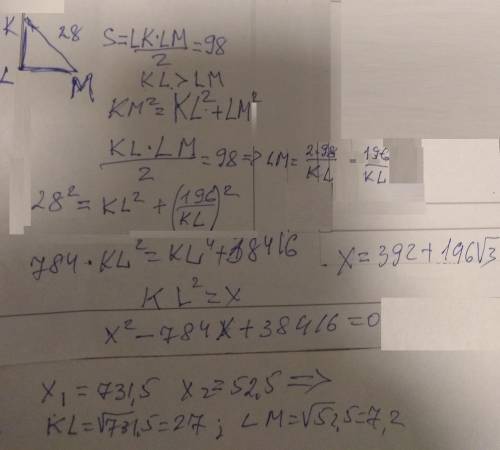 K 28
L M
S=LK·LM/2=98
KL>LM
KM²=KL²+LM²
KL·LM/2=98=>LM=2·98/KL=196/KL
28²=KL²+(196/KL)²
784·KL²=KL⁴+38416
X=392+196√3
KL²=X
X²-784X+38416=0
X₁=731,5 X₂=52,5=>
KL=√731,5=27; LM=√52,5=7,2